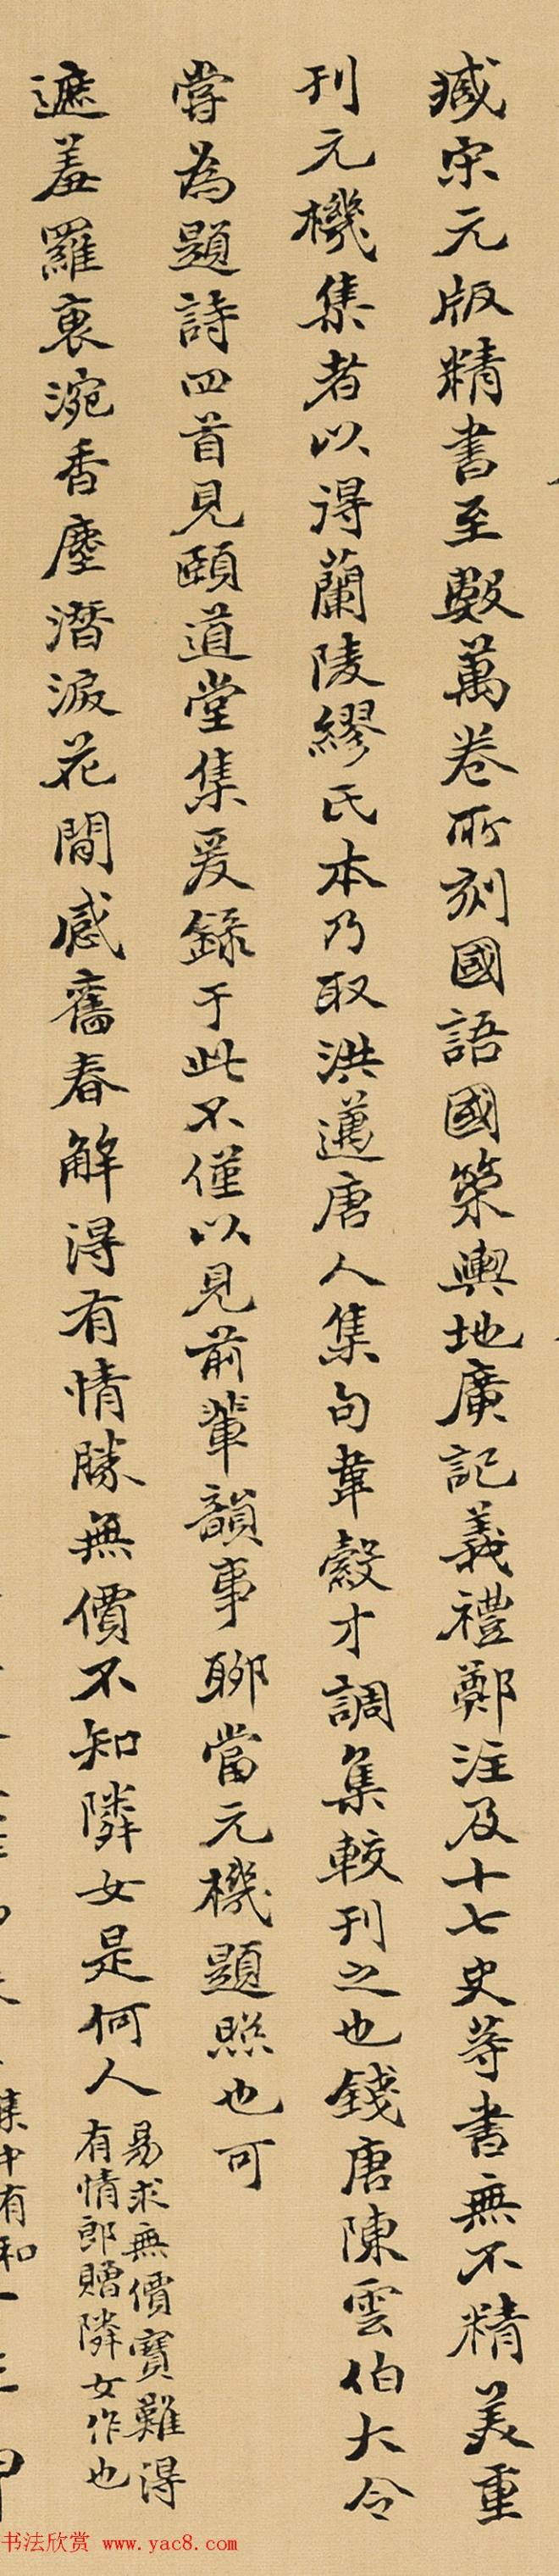 臧宋元版精書至數萬卷所刻國語國策輿地廣記義禮鄭注及十七史等書無不精美重
刊元機集者以得蘭陵繆氏本乃取洪邁唐人集句韋縠才調集較刊之也錢唐陳雲伯大令
嘗為題詩四首見頤道堂集爰錄于此不僅以見前輩韻事聊當元機題照也可
遮羞羅裏涴香塵潛淚花間感舊春解得有情勝無價不知隣女是何人
易求無價寶難得
有情郎贈隣女作也
集中有和
书法欣赏 www.yac8.com